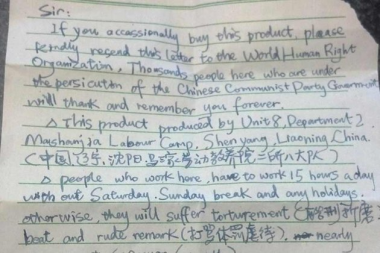 Sir:
If you occassionally buy this product, please
kindly resend this letter to the World Human Right
Organization. Thousands people here who are under
the persicution of the Chinese Communist Party Government
will thank and remember you forever.
△ This product produced by Unit 8, Department 2,
Mashanjia Labour Camp, Shen Yang, Liaoning, China.
(中国, 辽宁, 沈阳, 马三家劳动教养院二所八大队)
△ people who work here, have to work 15 hours a day
with out Saturday, Sunday break and any holidays.
otherwise, they will suffer torturement (酷刑折磨),
beat and rude remark (打骂体罚虐待), nearly